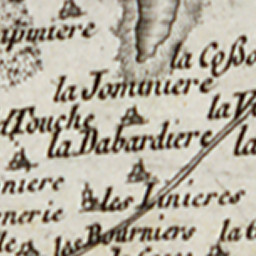 apiniere
la Coßo
la Jominiere
la Vo
Touche
la Dabardiere
la
niere
les Linieres
nerie
les Bourniers
la